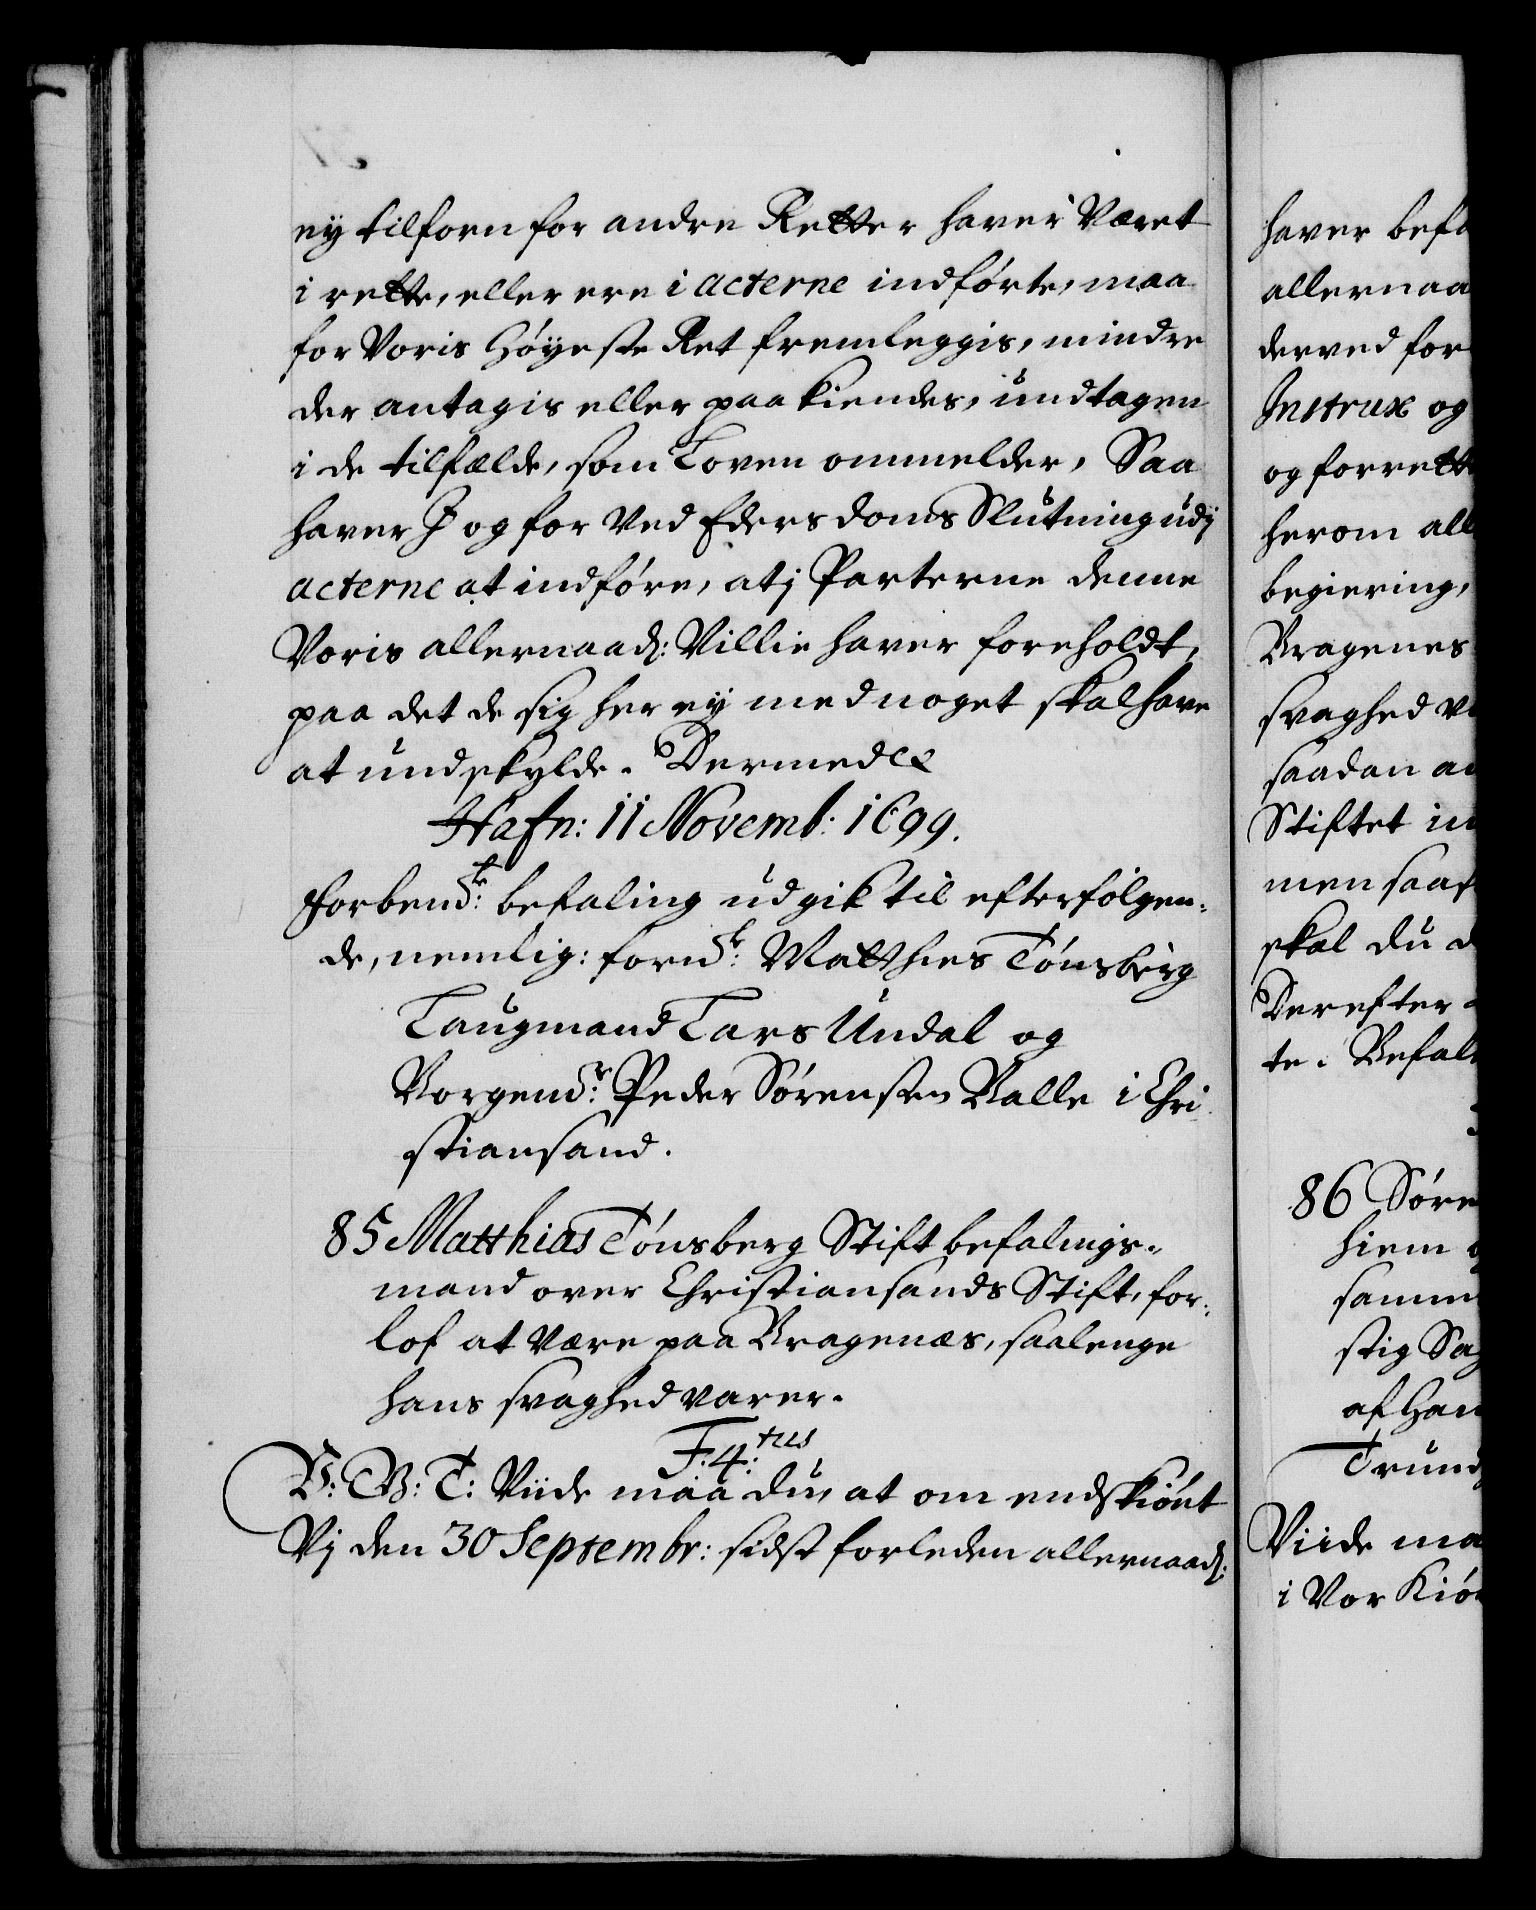 ey tilforn for andre Retter haver Været
i rette, eller ere i acterne indførte, maa
for Voris Høyeste Ret fremleggis, mindre
der antagis eller paakiendes, undtagen
i de tilfælde, som Loven ommelder, Saa
haver I og for Ved Eders doms Slutning udj
acterne at indføre, at j Parterne denne
Voris allernaad: Villie haver foreholdt,
paa det de sig her ey med noget skal have
at undskylde. Dermed &c
Hafn: 11 Novemb: 1699.
Forbend.te befaling udgik til efterfølgen-
de, nemlig: fornd.te Matthies Tønsberg
Laugmand Lars Undal og
Borgend.r Peder Sørensen Balle i Chri-
stiansand.
85 Matthias Tønsberg Stiftbefalings-
mand over Christiansands Stift, for-
lof at være paa Bragenæs, saalenge
hans svaghed varer.
F: 4.tus
V: G: T: Viide maa du, at om endskiønt
Vj den 30 Septembr: sidst forleden allernaad:
haver befa
allernaa
derved for
Instrux og
og forrette
herom all
begiering,
Bragenes
svaghed v
saadan a
Stiftet in
men saaf
skal du d
Derefter
te. Befal
86 Søre
hiem
samm
stig Sag
af Han
Trund
Viide ma
i Vor Kiø